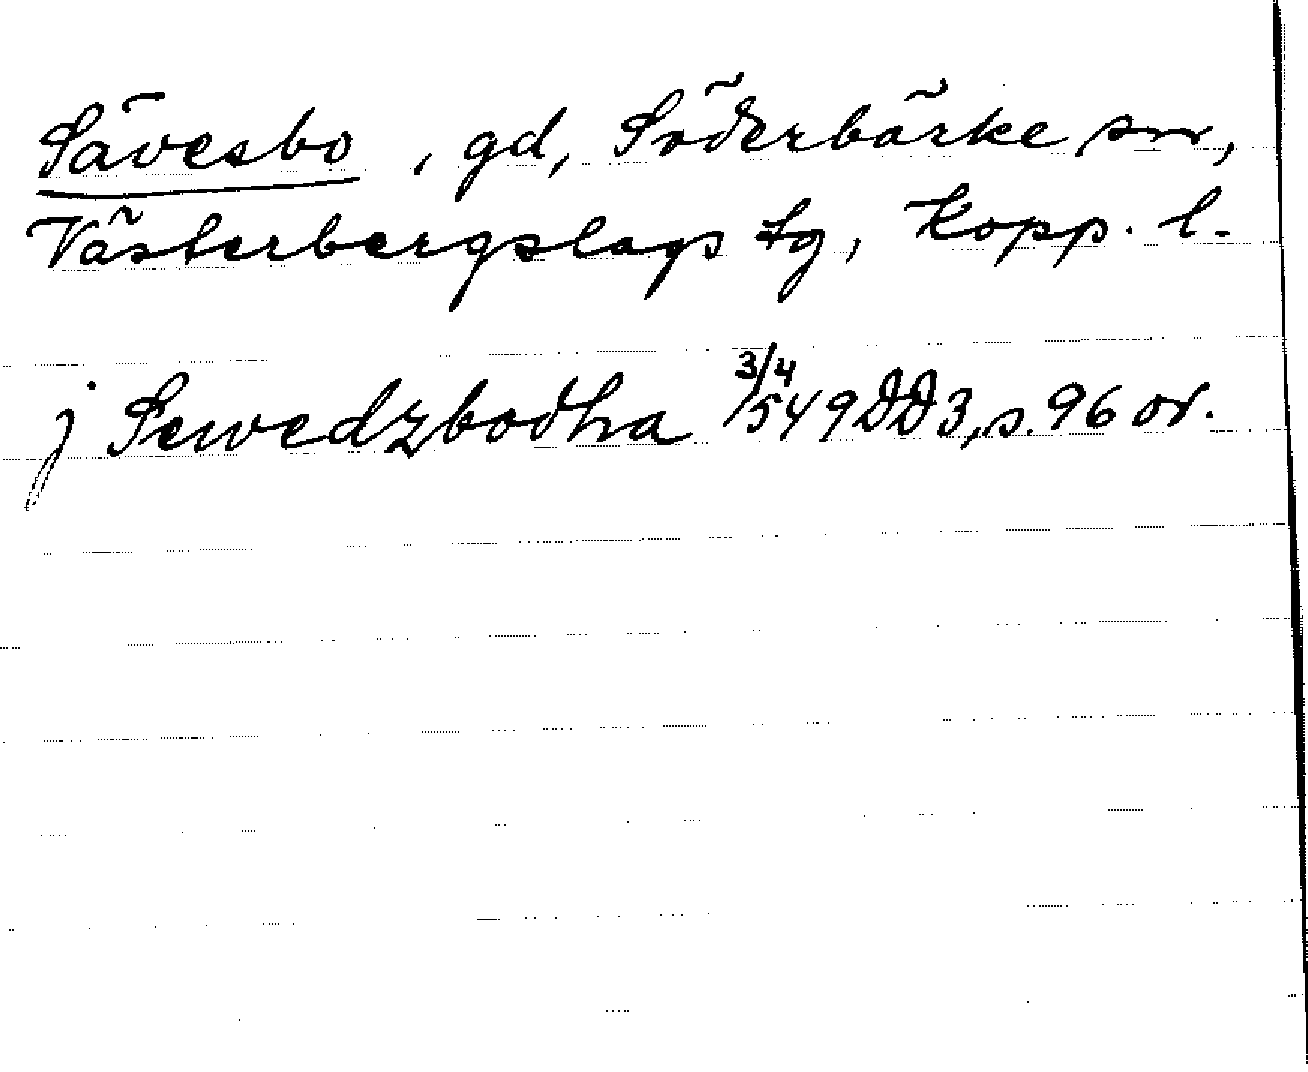 Sävesbo, gd, Söderbärke sn,
Västerbergslags tg, Kopp. l.
j Sewedzbodha 3/4 1549 DD3, s. 96 or.